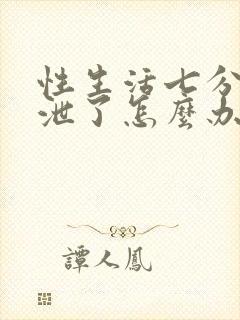 性生活七分
泄了怎麼办
譚人鳳